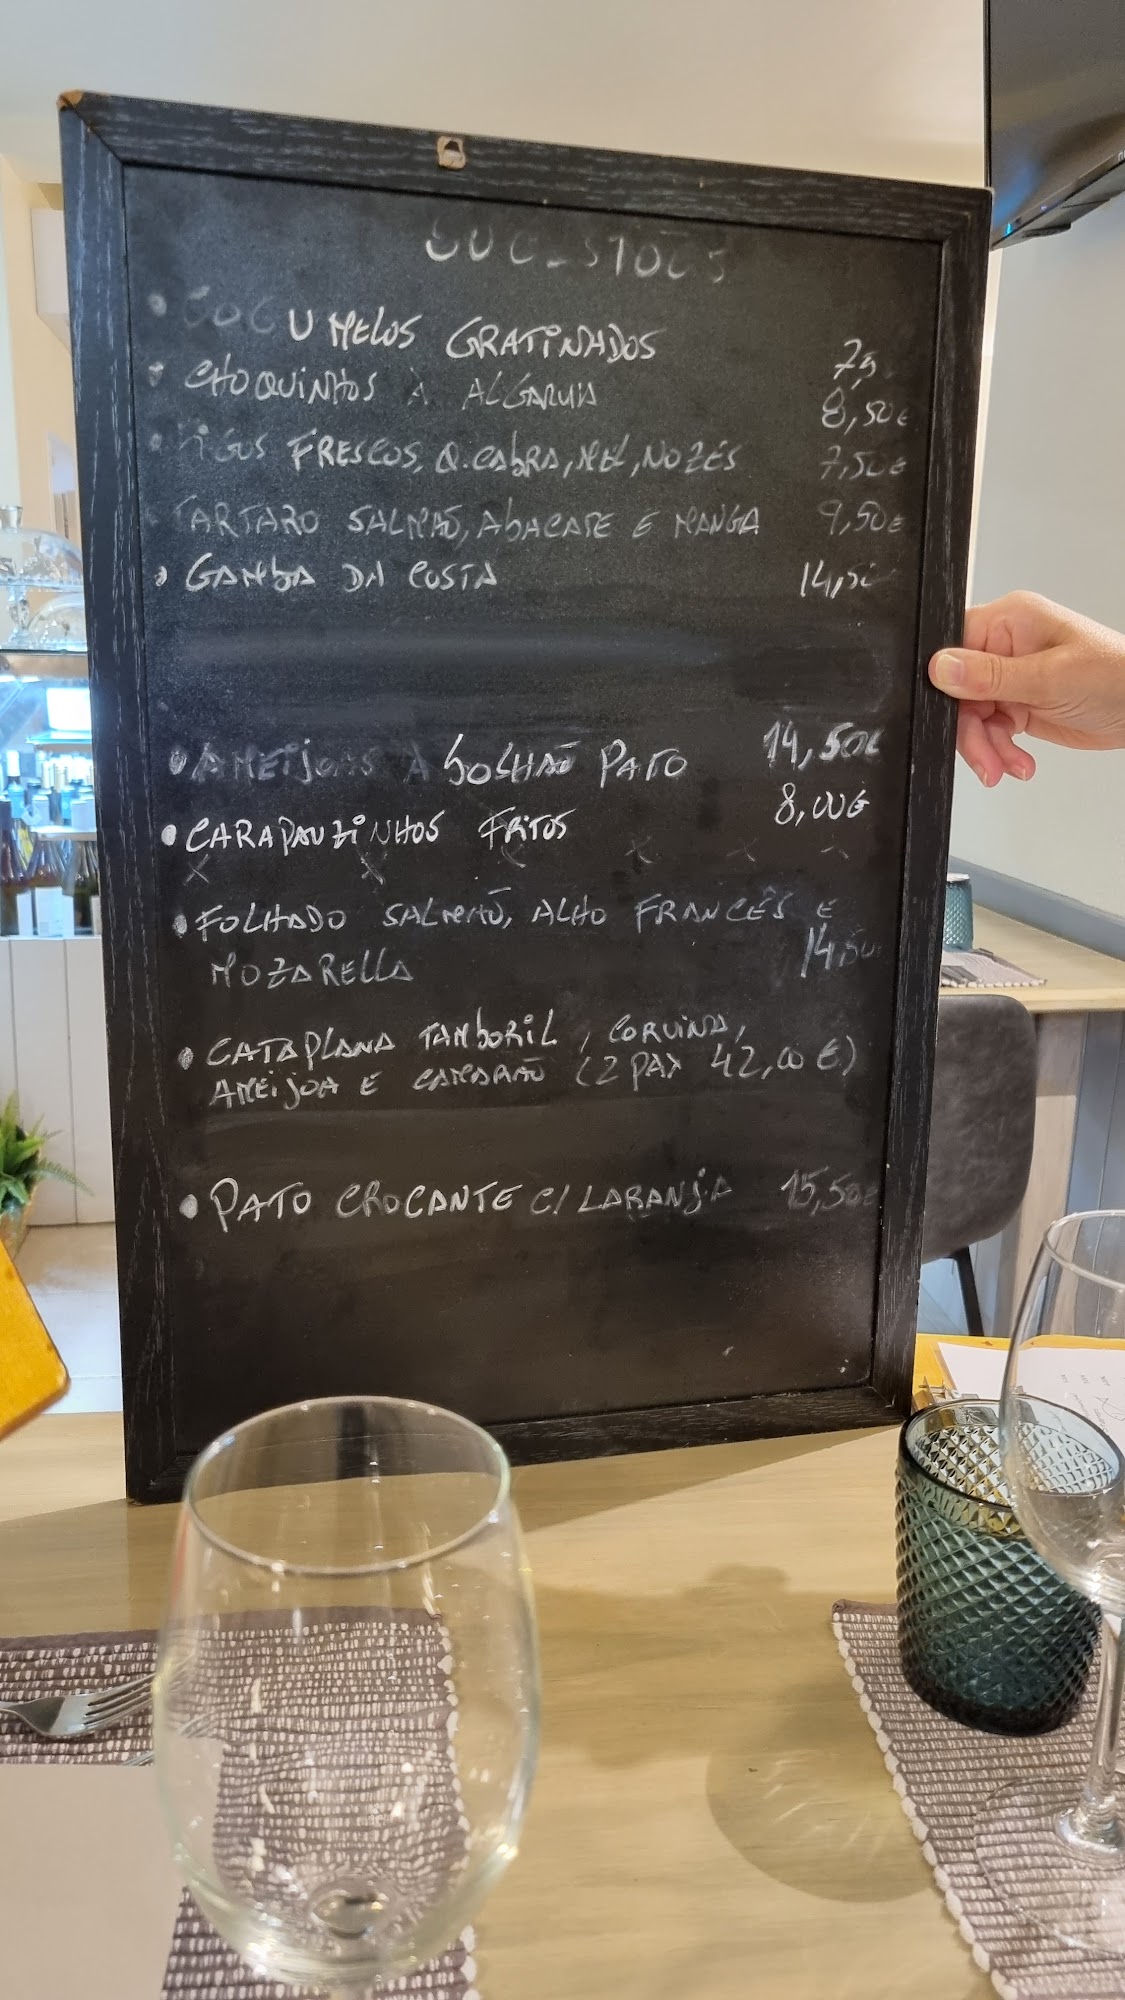 SUGESTÕES
• COGUMELOS GRATINADOS 7,5
• CHOQUINHOS À ALGARVIA 8,50€
• FIGOS FRESCOS, Q.CABRA, MEL, NOZES 7,50€
TARTARO SALMÃO, ABACATE E MANGA 9,50€
• GAMBA DA COSTA 14,50
• AMEIJOAS À BOLHÃO PATO 14,50€
• CARAPAUZINHOS FRITOS 8,00€
X X X X X X
• FOLHADO SALMÃO, ALHO FRANCÊS E
MOZARELLA 14,50
• CATAPLANA TAMBORIL, CORVINA,
AMEIJOA E CAMARÃO (2 PAX 42,00€)
• PATO CROCANTE C/ LARANJA 15,50€